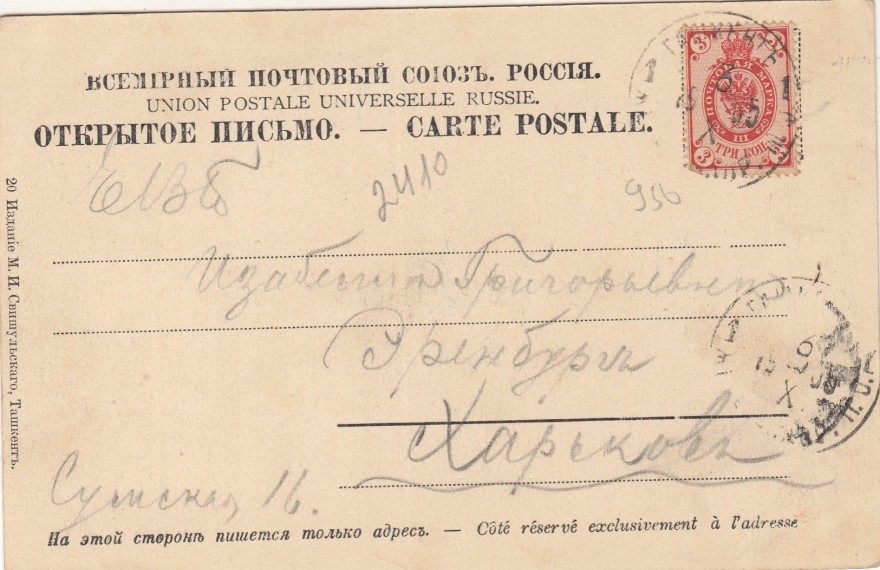 ВСЕМІРНЫЙ ПОЧТОВЫЙ СОЮЗЪ. РОССІЯ.
UNION POSTALE UNIVERSELLE RUSSIE.
ОТКРЫТОЕ ПИСЬМО. — CARTE POSTALE.
3 3
ПОЧТОВАЯ МАРКА
III
3 ТРИ КОП. 3
ТАШКЕНТЪ
ЕМВБ
2410
950
Изабеллѣ Григорьевнѣ
Эренбургъ
Харьковъ
Сумская, 16.
На этой сторонѣ пишется только адресъ. — Côté réservé exclusivement à l'adresse
20 Изданіе М. И. Свишульскаго, Ташкентъ.